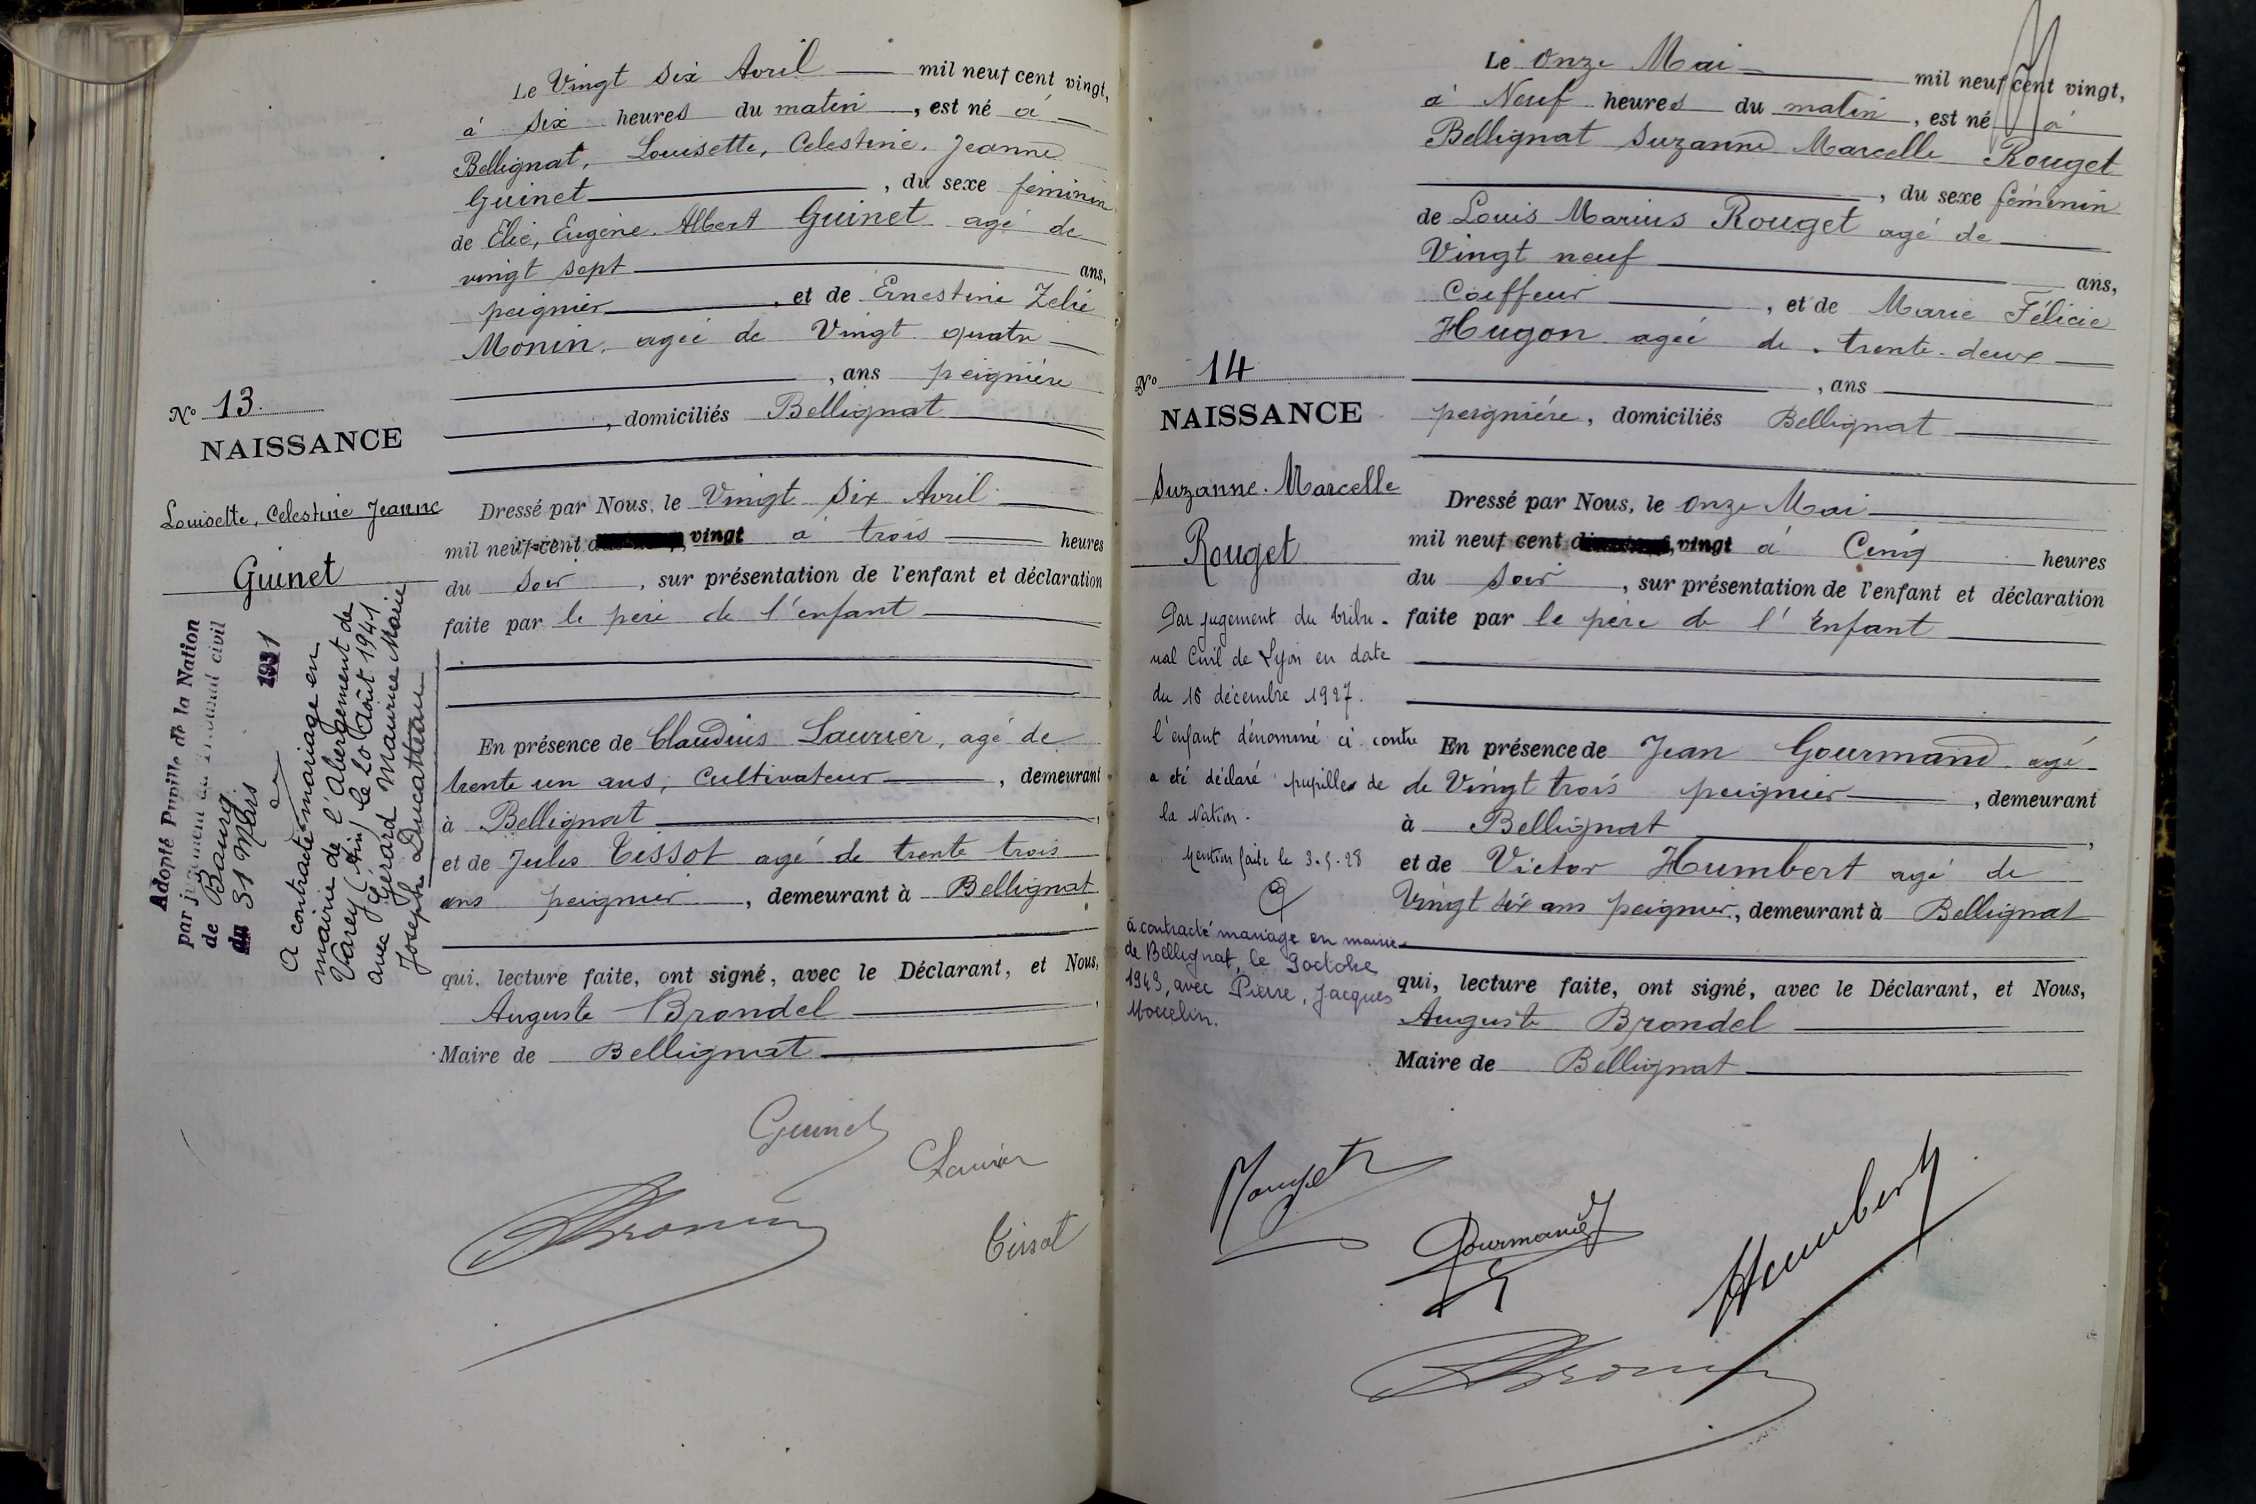 Le Vingt six Avril mil neuf cent vingt,
à six heures du matin, est né à
Bellignat, Louisette, Celestine, Jeanne
Guinet, du sexe féminin
de Elie, Eugène, Albert Guinet agé de
vingt sept ans,
peignier, et de Ernestine Zelie
Monin, agée de Vingt quatre
, ans peignière
, domiciliés Bellignat
No 13.
NAISSANCE
Louisette, Celestine Jeanne
Guinet
Dressé par Nous, le Vingt Six Avril
mil neuf cent vingt à trois heures
du soir, sur présentation de l'enfant et déclaration
faite par le père de l'enfant
En présence de Claudius Laurier, agé de
trente un ans, cultivateur, demeurant
à Bellignat
et de Jules Tissot agé de trente trois
ans peignier, demeurant à Bellignat
qui, lecture faite, ont signé, avec le Déclarant, et Nous,
Auguste Brondel
Maire de Bellignat
Adopté Pupille de la Nation
par jugement du Tribunal civil
de Bourg
du 31 Mars 1931
a contracté mariage en
mairie de l'Abergement de
Varey (Ain) le 20 Août 1941
avec Gérard Maurice Marie
Joseph Ducatteau
Guinet
Laurier
Tissot
Le Onze Mai mil neuf cent vingt,
à Neuf heures du matin, est né à
Bellignat Suzanne Marcelle Rouget
, du sexe féminin
de Louis Marius Rouget agé de
Vingt neuf ans,
Coiffeur, et de Marie Félicie
Hugon agée de trente-deux
, ans
peignière, domiciliés Bellignat
No 14
NAISSANCE
Suzanne. Marcelle
Rouget
Dressé par Nous, le onze Mai
mil neuf cent vingt à Cinq heures
du soir, sur présentation de l'enfant et déclaration
faite par le père de l'Enfant
En présence de Jean Gourmand agé
de Vingt trois peignier, demeurant
à Bellignat,
et de Victor Humbert agé de
Vingt six ans peignier, demeurant à Bellignat
qui, lecture faite, ont signé, avec le Déclarant, et Nous,
Auguste Brondel
Maire de Bellignat
Par jugement du tribu-
nal Civil de Lyon en date
du 16 décembre 1927.
l'enfant dénommé ci contre
a été déclaré pupille de
la Nation.
Mention faite le 3.5.28
a contracté mariage en mairie
de Bellignat, le 9 octobre
1943, avec Pierre, Jacques
Rouget
Gourmand
Humbert